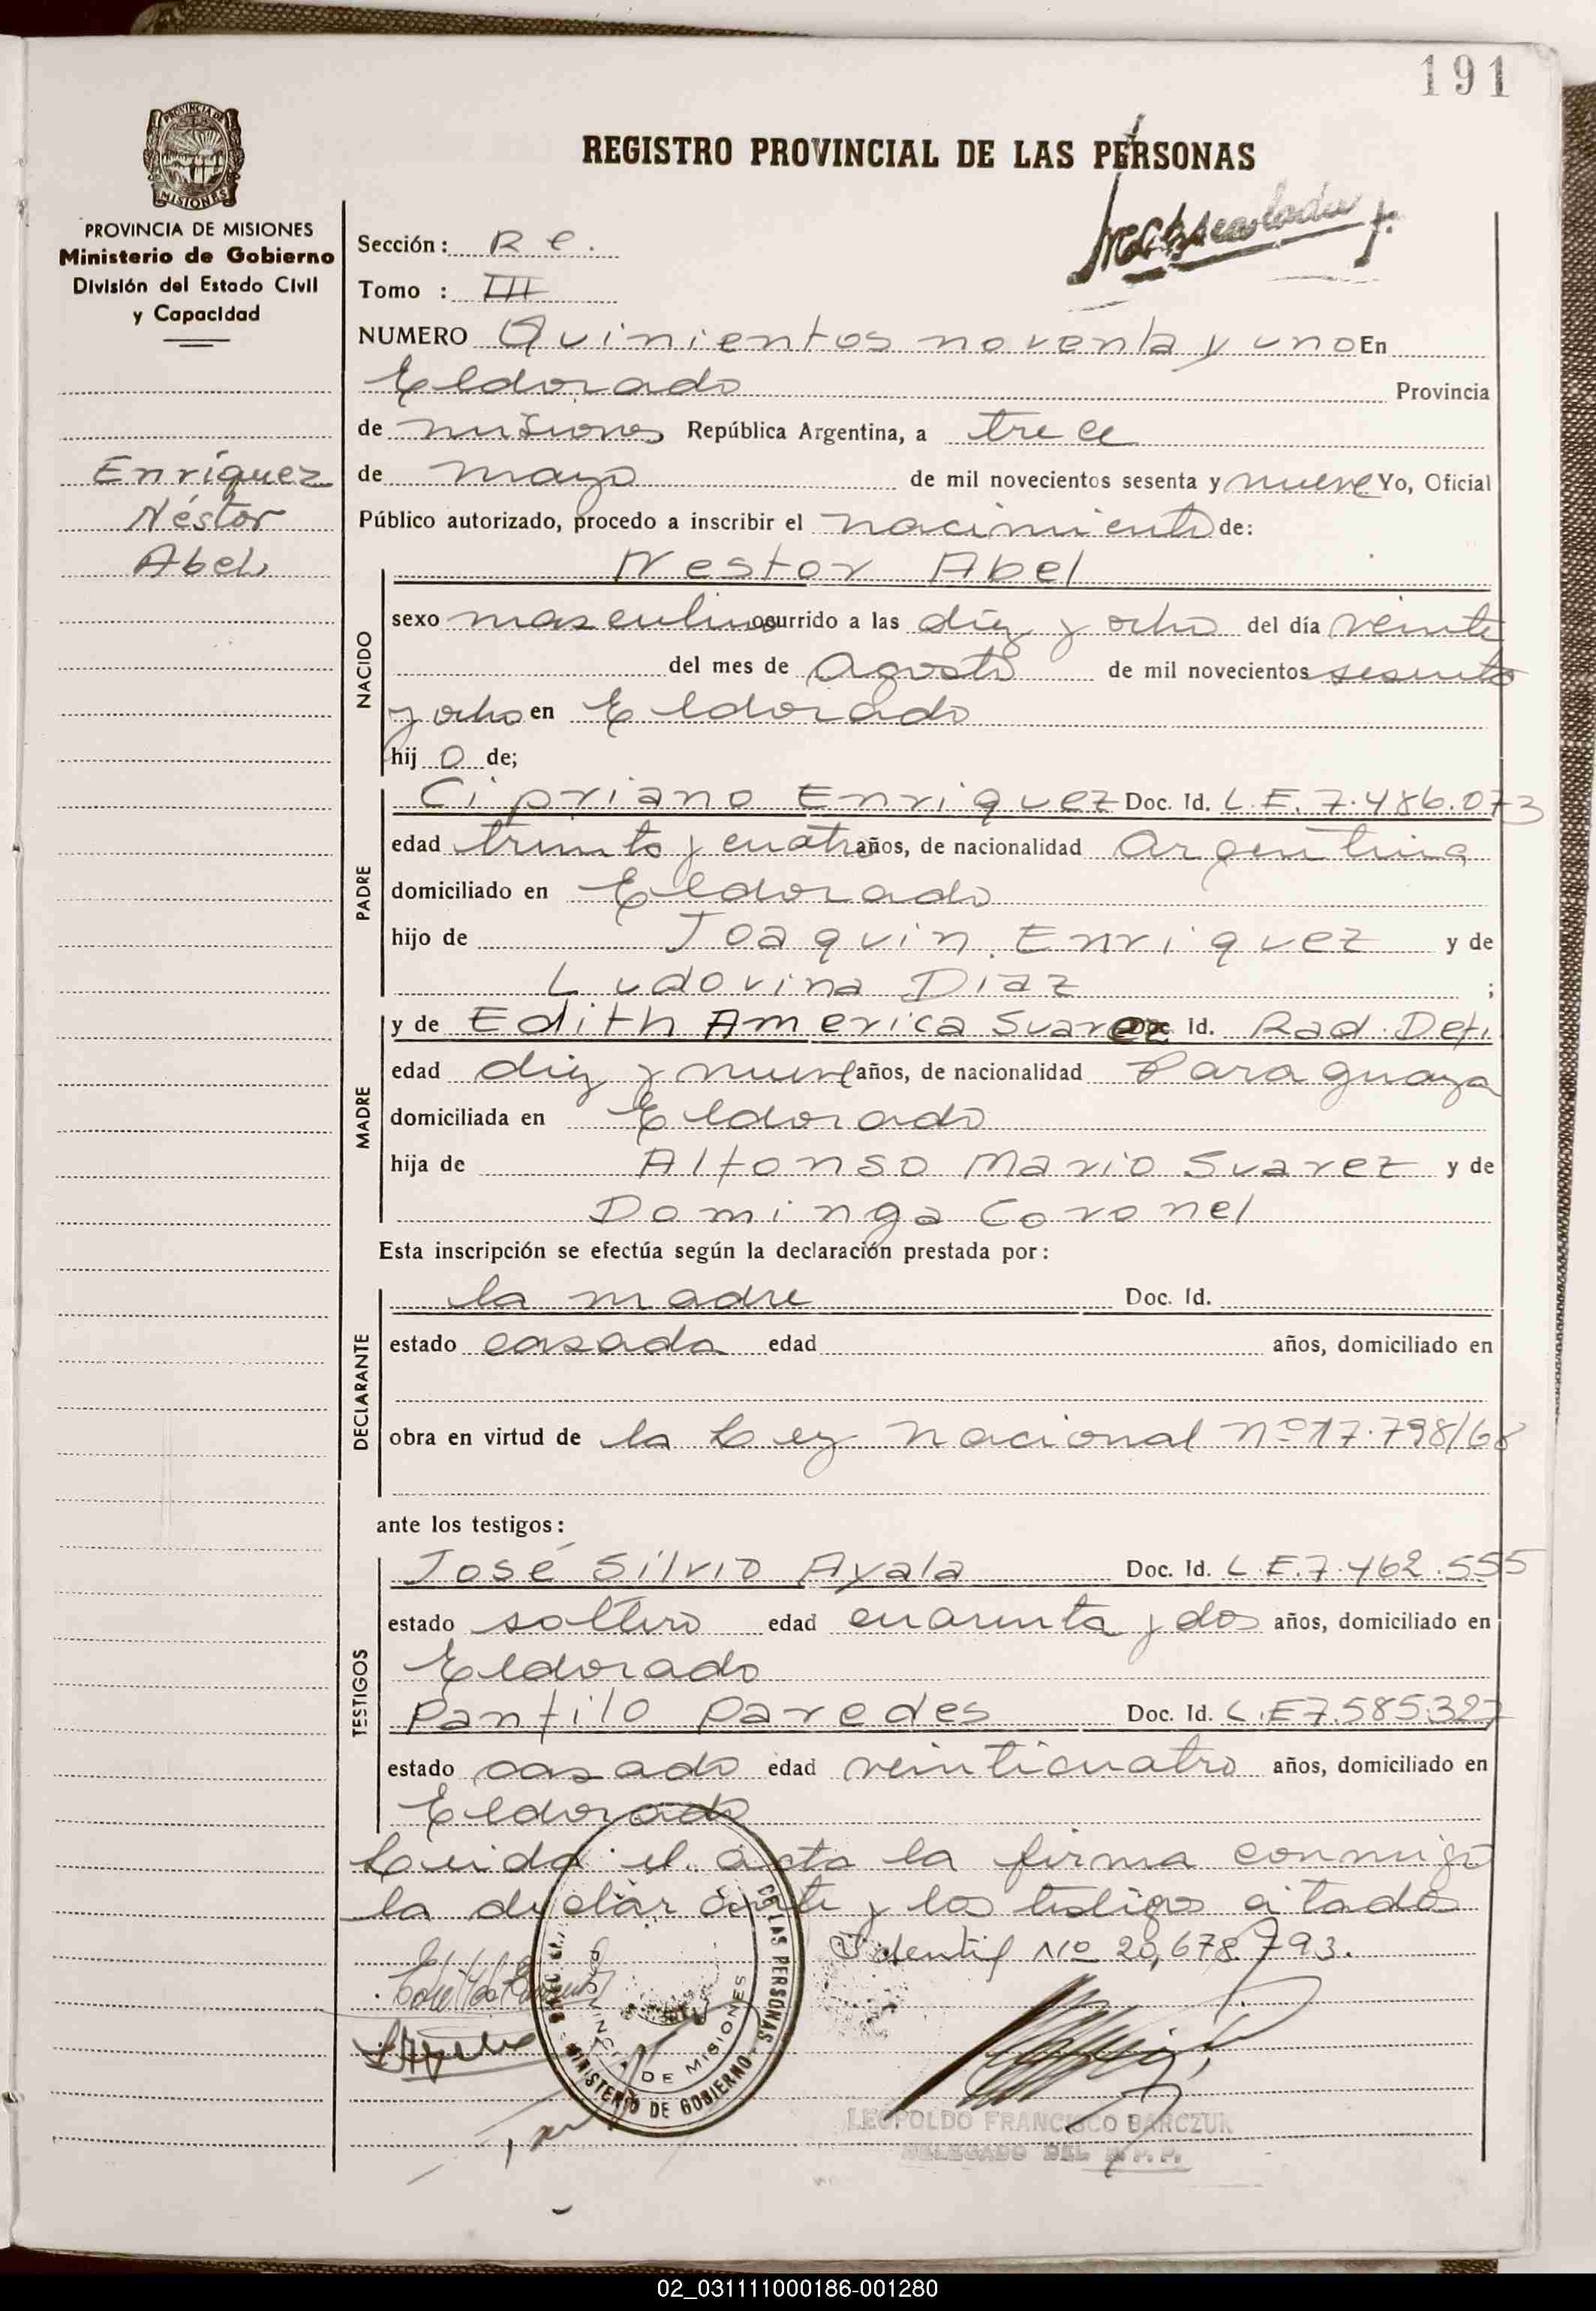 191
REGISTRO PROVINCIAL DE LAS PERSONAS
PROVINCIA DE MISIONES
Ministerio de Gobierno
División del Estado Civil
y Capacidad
Enríquez
Néstor
Abel
Sección: R e.
Tomo : III
NUMERO Quinientos noventa y uno En
Eldorado Provincia
de misiones República Argentina, a trece
de mayo de mil novecientos sesenta y nueve Yo, Oficial
Público autorizado, procedo a inscribir el nacimiento de:
Nestor Abel
NACIDO
sexo masculino ocurrido a las diez y ocho del día veinte
del mes de Agosto de mil novecientos sesenta
y ocho en Eldorado
hij o de;
PADRE
Cipriano Enriquez Doc. Id. L.E. 7.486.073
edad treinta y cuatro años, de nacionalidad Argentina
domiciliado en Eldorado
hijo de Joaquin Enriquez y de
Ludovina Diaz ;
MADRE
y de Edith America Suarez Doc. Id. Rad. Def.
edad diez y nueve años, de nacionalidad Paraguaya
domiciliada en Eldorado
hija de Alfonso Mario Suarez y de
Dominga Coronel
Esta inscripción se efectúa según la declaración prestada por:
DECLARANTE
la madre Doc. Id.
estado casada edad años, domiciliado en
obra en virtud de la Ley Nacional Nº 17.798/68
ante los testigos:
TESTIGOS
José Silvio Ayala Doc. Id. L.E. 7.462.555
estado soltero edad cuarenta y dos años, domiciliado en
Eldorado
Panfilo Paredes Doc. Id. L.E 7.585.327
estado casado edad veinticuatro años, domiciliado en
Eldorado
Leida el acta la firma conmigo
la declarante y los testigos citados
Identif Nº 20,678.793.
DE LAS PERSONAS
MINISTERIO DE GOBIERNO
PROVINCIA DE MISIONES
LEOPOLDO FRANCISCO BARCZUK
DELEGADO DEL R.P.P.
02_031111000186-001280